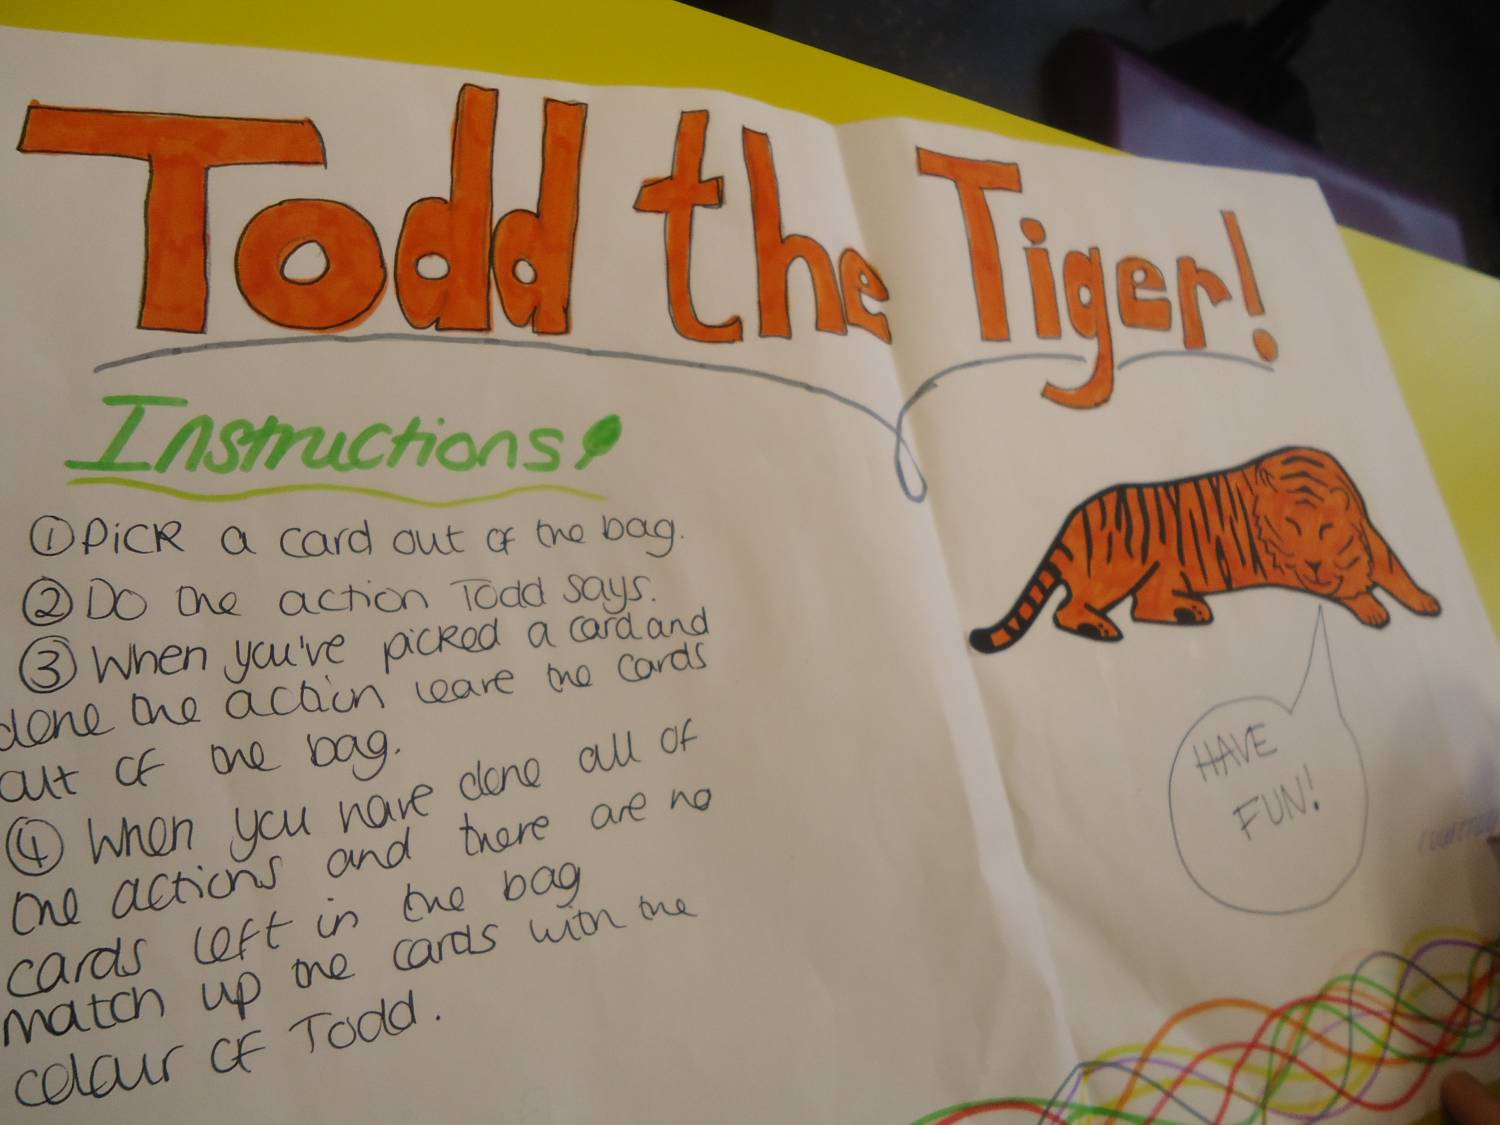 Todd the Tiger!
Instructions!
① Pick a card out of the bag.
② Do the action Todd says.
③ When you've picked a card and
done the action leave the cards
out of the bag.
④ When you have done all of
the actions and there are no
cards left in the bag
match up the cards with the
colour of Todd.
HAVE
FUN!